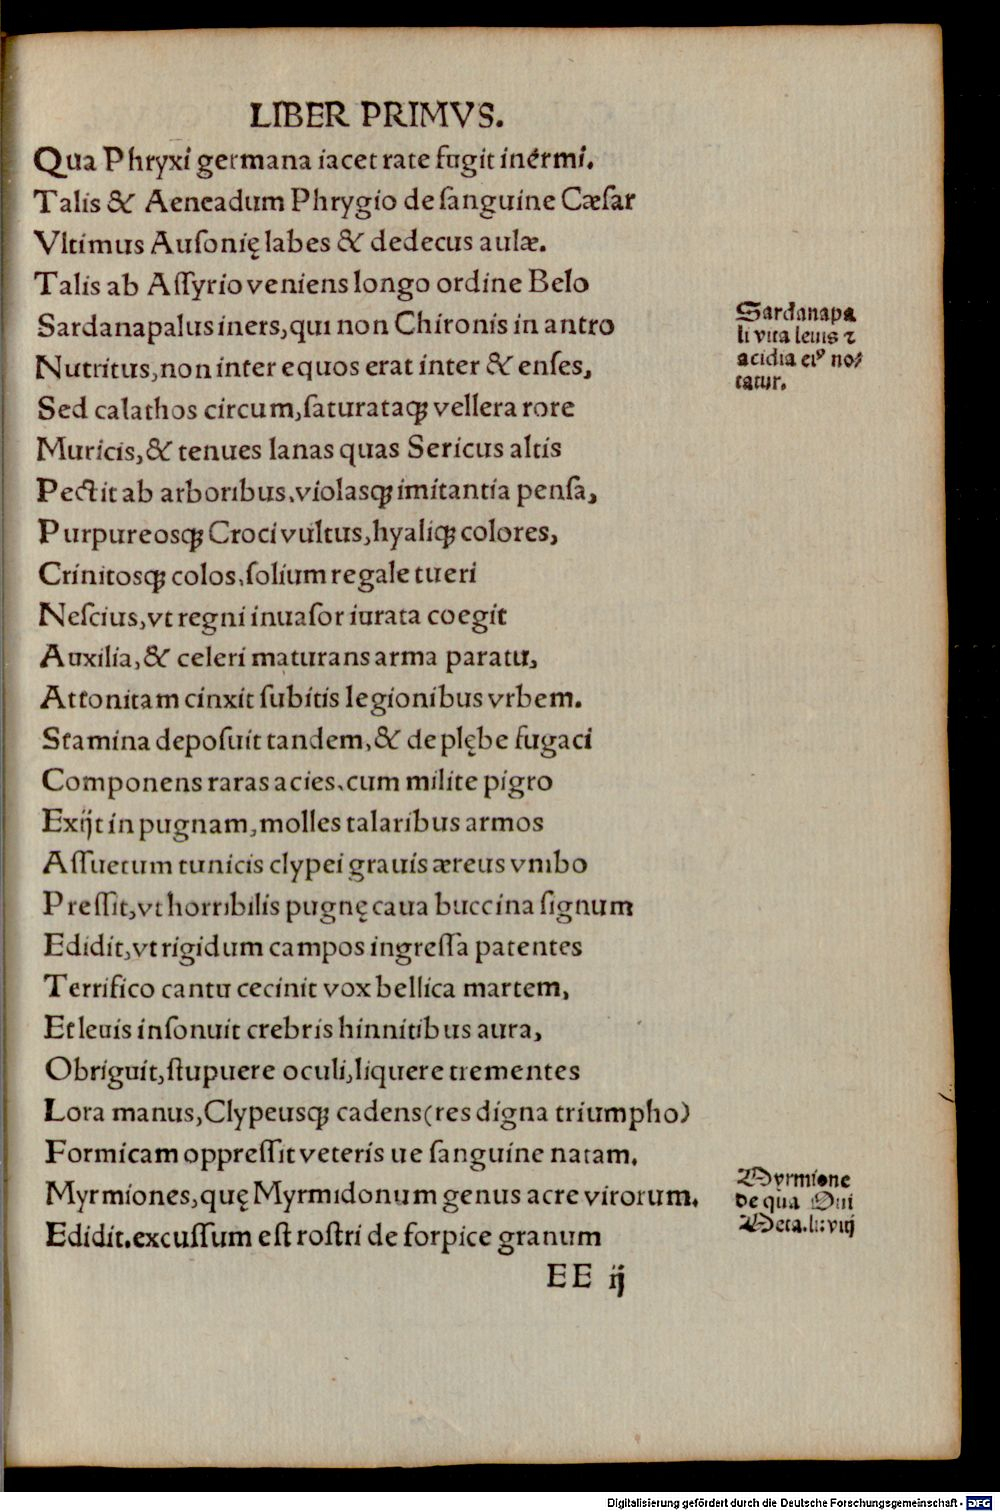 LIBER PRIMVS.
Qua Phryxi germana iacet rate fugit inermi.
Talis & Aeneadum Phrygio de ſanguine Cæſar
Vltimus Auſonię labes & dedecus aulæ.
Talis ab Aſſyrio veniens longo ordine Belo
Sardanapalus iners, qui non Chironis in antro
Nutritus, non inter equos erat inter & enſes,
Sed calathos circum, ſaturataqꝫ vellera rore
Muricis, & tenues lanas quas Sericus altis
Pectit ab arboribus, violasqꝫ imitantia penſa,
Purpureosqꝫ Croci vultus, hyaliqꝫ colores,
Crinitosqꝫ colos, ſolium regale tueri
Neſcius, vt regni inuaſor iurata coegit
Auxilia, & celeri maturans arma paratu,
Attonitam cinxit ſubitis legionibus vrbem.
Stamina depoſuit tandem, & de plębe fugaci
Componens raras acies, cum milite pigro
Exijt in pugnam, molles talaribus armos
Aſſuetum tunicis clypei grauis æreus vmbo
Preſſit, vt horribilis pugnę caua buccina ſignum
Edidit, vt rigidum campos ingreſſa patentes
Terrifico cantu cecinit vox bellica martem,
Et leuis inſonuit crebris hinnitibus aura,
Obriguit, ſtupuere oculi, liquere trementes
Lora manus, Clypeusqꝫ cadens (res digna triumpho)
Formicam oppreſſit veteris ue ſanguine natam.
Myrmiones, quę Myrmidonum genus acre virorum.
Edidit. excuſſum eſt roſtri de forpice granum
EE ij
Sardanapa
li vita leuis ⁊
acidia eiꝰ no⸗
tatur.
Myrmione
de qua Oui
Meta. li: viij
Digitalisierung gefördert durch die Deutsche Forschungsgemeinschaft - DFG